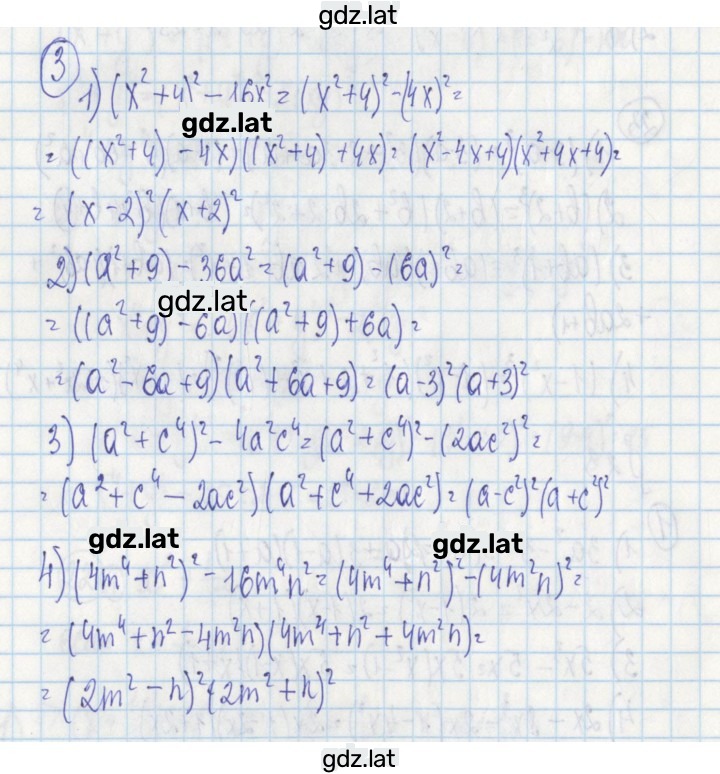 gdz.lat
3
1) (x²+4)² - 16x² = (x²+4)² - (4x)² =
gdz.lat
= ((x²+4) - 4x)((x²+4) + 4x) = (x²-4x+4)(x²+4x+4) =
= (x-2)²(x+2)²
2) (a²+9) - 36a² = (a²+9) - (6a)² =
gdz.lat
= ((a²+9) - 6a)((a²+9) + 6a) =
= (a² - 6a + 9)(a² + 6a + 9) = (a-3)²(a+3)²
3) (a² + c⁴)² - 4a²c⁴ = (a² + c⁴)² - (2ac²)² =
= (a² + c⁴ - 2ac²)(a² + c⁴ + 2ac²) = (a-c²)²(a+c²)²
gdz.lat
gdz.lat
4) (4m⁴+n²)² - 16m⁴n² = (4m⁴+n²)² - (4m²n)² =
= (4m⁴+n²-4m²n)(4m⁴+n²+4m²n) =
= (2m² - n)²(2m² + n)²
gdz.lat